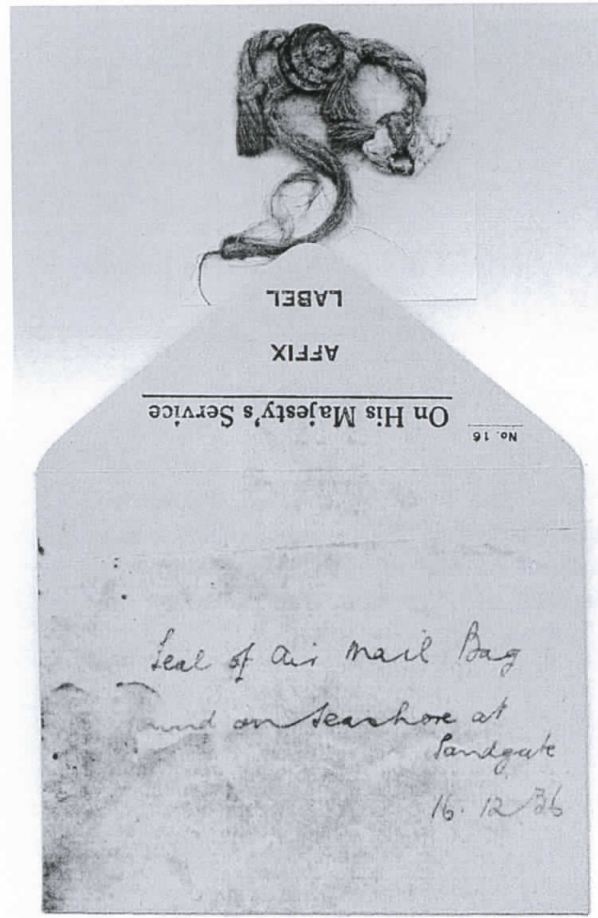 No. 16
On His Majesty's Service
AFFIX
LABEL
Seal of Air Mail Bag
found on Seashore at
Sandgate
16. 12 36